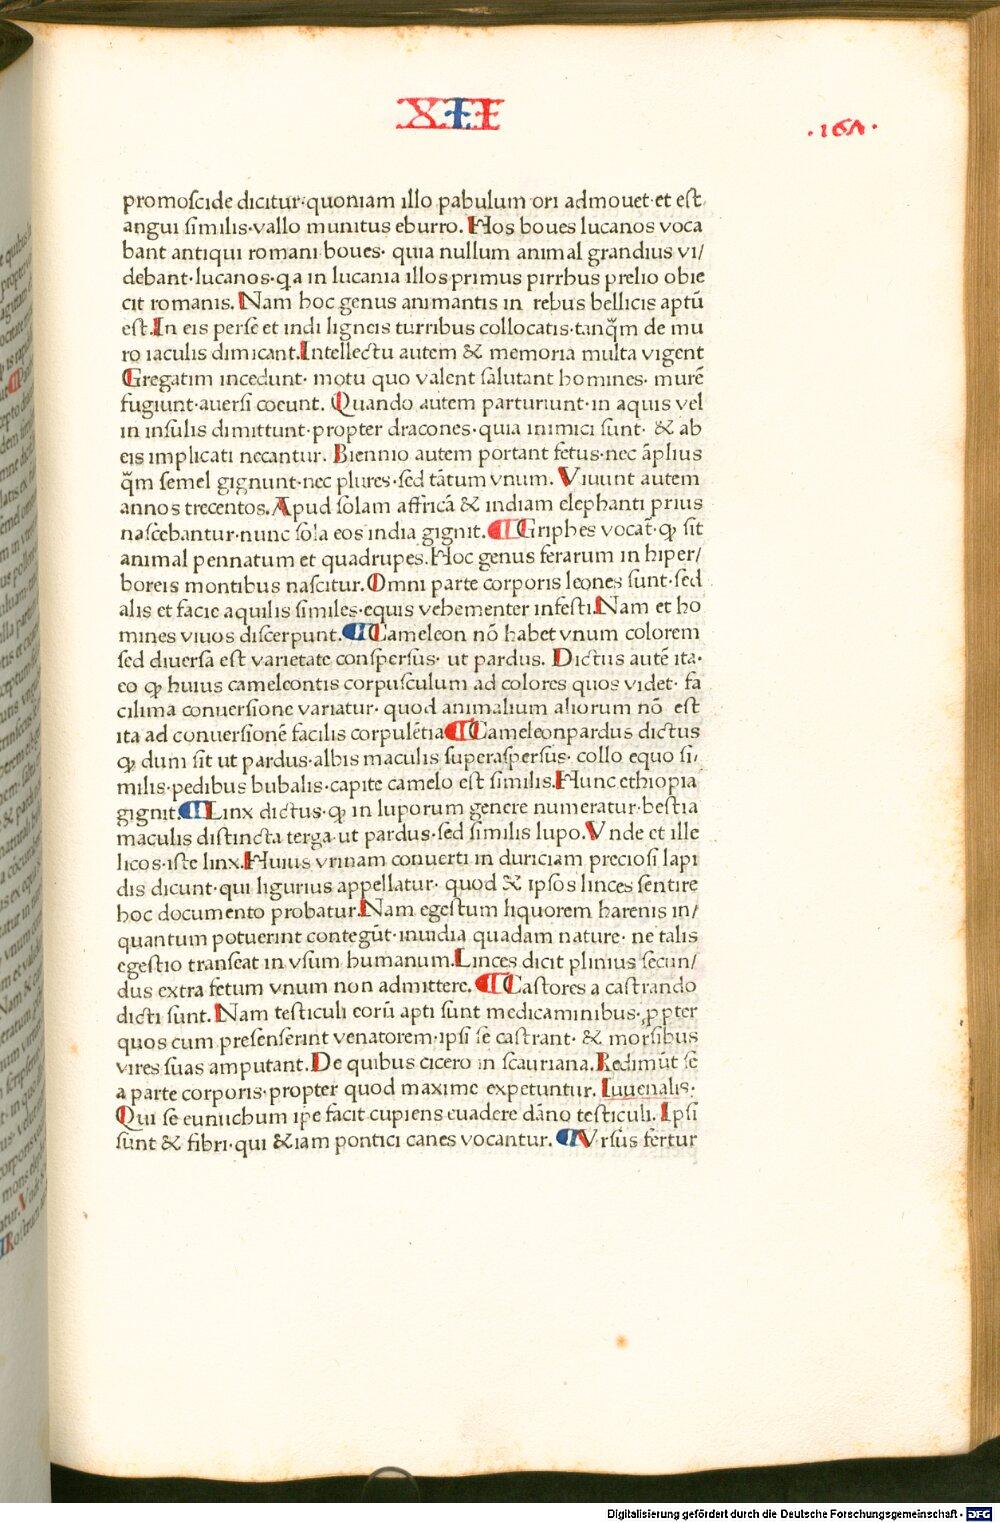 XII
·167·
promoscide dicitur·quoniam illo pabulum ori admouet·et est
angui similis·vallo munitus eburro. Hos boues lucanos voca
bant antiqui romani boues· quia nullum animal grandius vi/
debant·lucanos·qa in lucania illos primus pirrhus prelio obie
cit romanis. Nam hoc genus animantis in rebus bellicis aptū
est.In eis perse et indi ligneis turribus collocatis·tanq̄m de mu
ro iaculis dimicant.Intellectu autem & memoria multa vigent
Gregatim incedunt· motu quo valent salutant homines· murē
fugiunt·auersi coeunt. Quando autem parturiunt·in aquis vel
in insulis dimittunt·propter dracones·quia inimici sunt· & ab
eis implicati necantur. Biennio autem portant fetus·nec āplius
q̄m semel gignunt·nec plures·sed tātum vnum. Viuunt autem
annos trecentos.Apud solam affricā & indiam elephanti prius
nascebantur·nunc sola eos india gignit. ¶Griphes vocat̄·ꝙ sit
animal pennatum et quadrupes.Hoc genus ferarum in hiper/
boreis montibus nascitur.Omni parte corporis leones sunt·sed
alis et facie aquilis similes·equis vehementer infesti.Nam et ho
mines viuos discerpunt.¶Cameleon nō habet vnum colorem
sed diuersa est varietate conspersus· ut pardus. Dictus autē ita·
eo ꝙ huius cameleontis corpusculum ad colores quos videt· fa
cilima conuersione variatur· quod animalium aliorum nō est
ita ad conuersionē facilis corpulētia¶Cameleonpardus dictus
ꝙ dum sit ut pardus·albis maculis superaspersus· collo equo si/
milis·pedibus bubalis·capite camelo est similis.Hunc ethiopia
gignit.¶Linx dictus·ꝙ in luporum genere numeratur·bestia
maculis distincta terga·ut pardus·sed similis lupo.Vnde et ille
licos·iste linx.Huius vrinam conuerti in duriciam preciosi lapi
dis dicunt·qui ligurius appellatur· quod & ipsos linces sentire
hoc documento probatur.Nam egestum liquorem harenis in/
quantum potuerint contegūt·inuidia quadam nature· ne talis
egestio transeat in vsum humanum.Linces dicit plinius secun/
dus extra fetum vnum non admittere. ¶Castores a castrando
dicti sunt.Nam testiculi eorū apti sunt medicaminibus·ꝓpter
quos cum presenserint venatorem·ipsi se castrant· & morsibus
vires suas amputant.De quibus cicero in scauriana.Redimūt se
a parte corporis·propter quod maxime expetuntur. Iuuenalis·
Qui se eunuchum ip̄e facit cupiens euadere dāno testiculi. Ipsi
sunt & fibri·qui &iam pontici canes vocantur. ¶Vrsus fertur
Digitalisierung gefördert durch die Deutsche Forschungsgemeinschaft - DFG